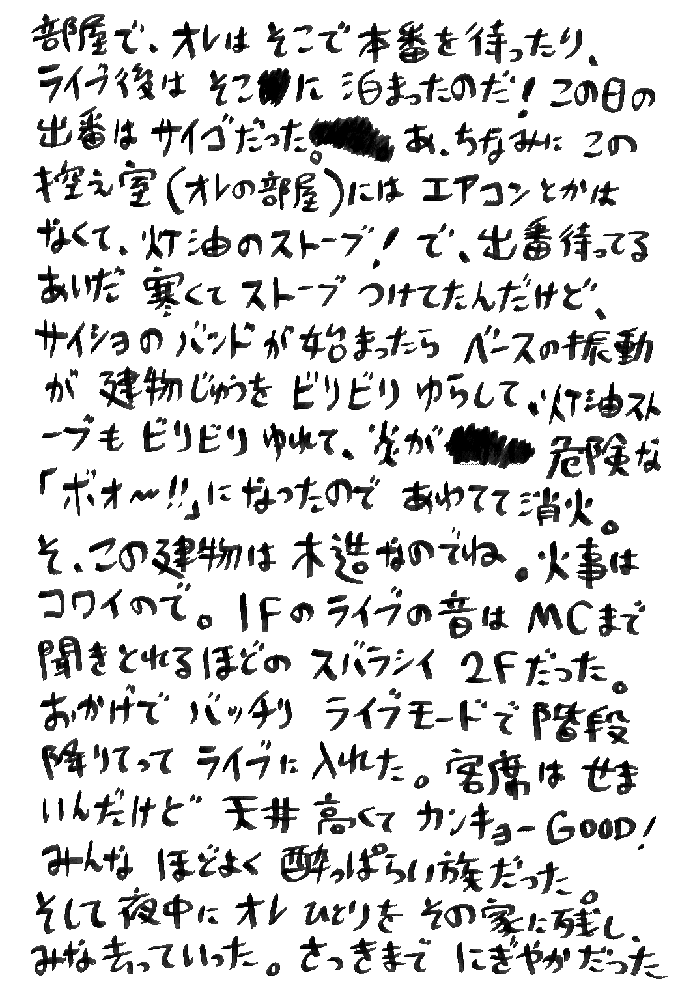 部屋で、オレは そこで本番を待ったり、
ライブ後は そこに 泊まったのだ！この日の
出番は サイゴだった。 あ、ちなみに この
控え室（オレの部屋）には エアコンとかは
なくて、灯油のストーブ！で、出番待ってる
あいだ 寒くて ストーブ つけてたんだけど、
サイショの バンドが始まったら ベースの振動
が 建物じゅうを ビリビリ ゆらして、灯油スト
ーブも ビリビリ ゆれて、炎が 危険な
「ボオ〜!!」になったので あわてて消火。
そ、この建物は 木造なのでね。火事は
コワイので。1Fのライブの音は MCまで
聞きとれるほどの スバラシイ 2Fだった。
おかげで バッチリ ライブモードで 階段
降りてって ライブに 入れた。客席は せま
いんだけど 天井 高くて カンキョー GOOD！
みんな ほどよく 酔っぱらい族だった。
そして夜中に オレ ひとりを その家に残し、
みな去っていった。さっきまで にぎやかだった